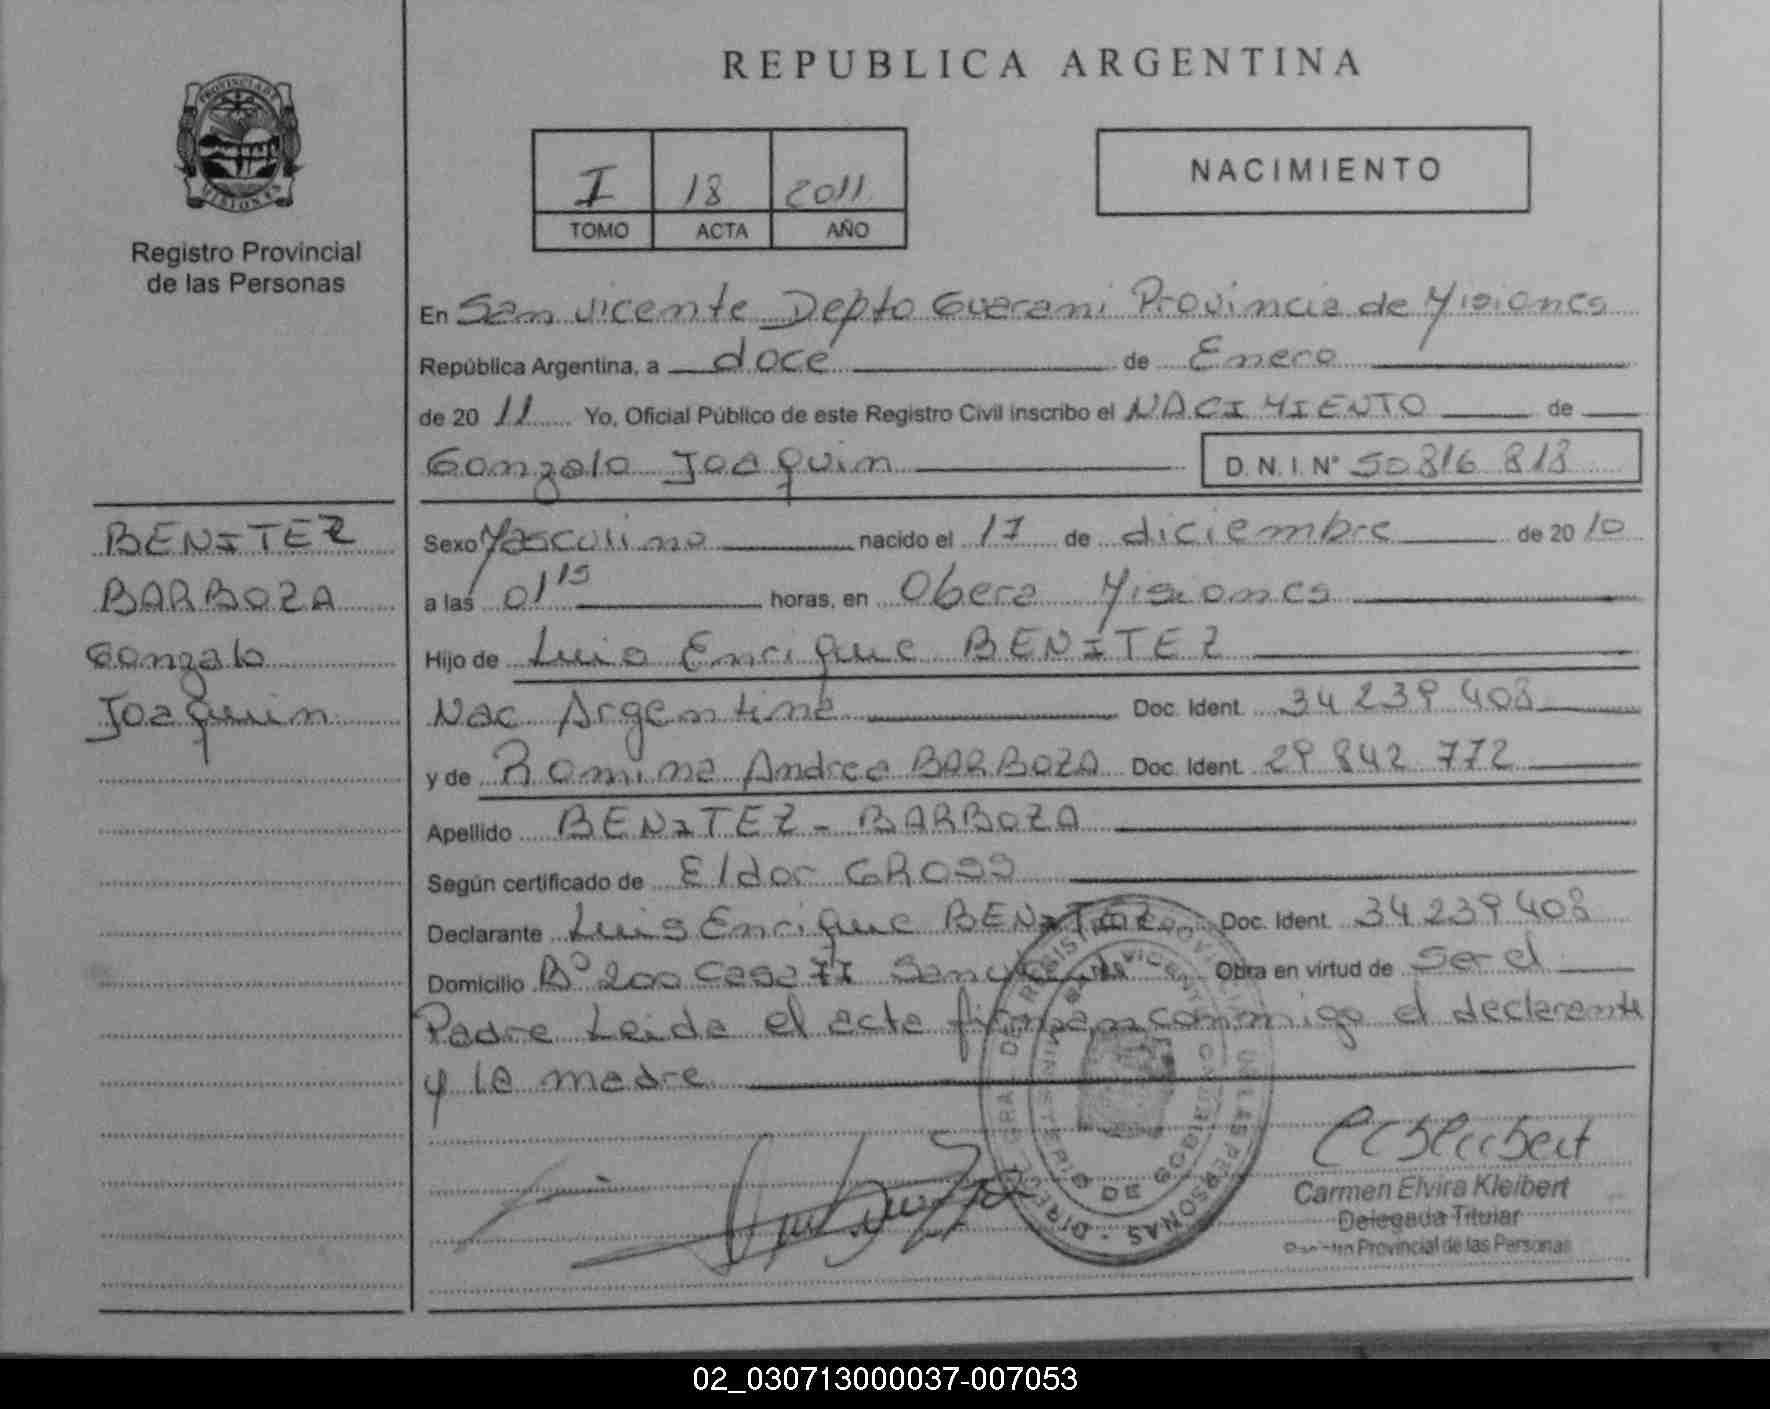 REPUBLICA ARGENTINA
PROVINCIA DE
MISIONES
Registro Provincial
de las Personas
I 18 2011
TOMO ACTA AÑO
NACIMIENTO
En San Vicente Depto Guarani Provincia de Misiones
República Argentina, a doce de Enero
de 20 11 Yo, Oficial Público de este Registro Civil inscribo el NACIMIENTO de
Gonzalo Joaquin D.N.I. N° 50 816 818
BENITEZ
BARBOZA
Gonzalo
Joaquin
Sexo Masculino nacido el 17 de diciembre de 20 10
a las 01 15 horas, en Obera Misiones
Hijo de Luis Enrique BENITEZ
Nac Argentina Doc. Ident. 34 239 408
y de Romina Andrea BARBOZA Doc. Ident. 29 842 772
Apellido BENITEZ - BARBOZA
Según certificado de Eldor GROSS
Declarante Luis Enrique BENITEZ Doc. Ident. 34 239 408
Domicilio B° 200 Casa San Vicente Obra en virtud de Ser el
Padre Leida el acta firman conmigo el declarante
y la madre
Carmen Elvira Kleibert
Delegada Titular
Registro Provincial de las Personas
02_030713000037-007053